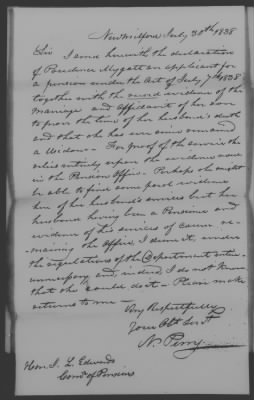 New Milford July 30th 1838
Sir I send herewith the declaration
of Prudence Mygatt an applicant for
a pension under the Act of July 7th 1838
together with the record evidence of the
marriage and affidavit of her son
to prove the time of her husband's death
and that she has ever since remained
a Widow - For proof of the service she
relies entirely upon the evidence now
in the Pension Office. Perhaps she might
be able to find some parol evidence
here of her husband's services but her
husband having been a Pensioner and
evidence of his services of course re-
maining in the Office I deem it, under
the regulations of the Department entirely
unnecessary and, indeed, I do not know
that she could do it - Please make
returns to me -
Very Respectfully
Your Obt Servt
N. Perry
Hon. J. L. Edwards
Com'r of Pensions